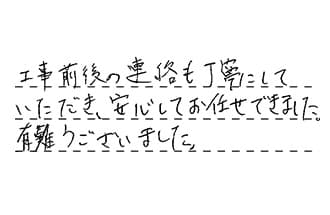 工事前後の連絡も丁寧にして
いただき、安心してお任せできました。
有難うございました。